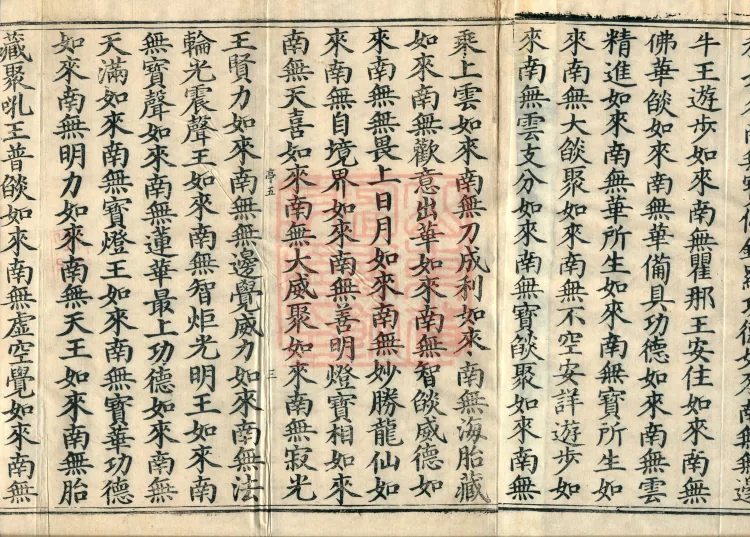 牛王遊步如來南無瞿那王安住如來南無
佛華㷔如來南無華備具功德如來南無雲
精進如來南無華所生如來南無寶所生如
來南無大㷔聚如來南無不空安詳遊步如
來南無雲支分如來南無寶㷔聚如來南無
乘上雲如來南無刀成利如來南無海胎藏
如來南無歡意出華如來南無智㷔威德如
來南無無畏上日月如來南無妙勝龍仙如
來南無自境界如來南無善明燈寶相如來
南無天喜如來南無大威聚如來南無寂光
亭五
三
王賢力如來南無無邊覺威力如來南無法
輪光震聲王如來南無智炬光明王如來南
無寶聲如來南無蓮華最上功德如來南無
天滿如來南無寶燈王如來南無寶華功德
如來南無明力如來南無天王如來南無胎
藏聚吼王普㷔如來南無虛空覺如來南無